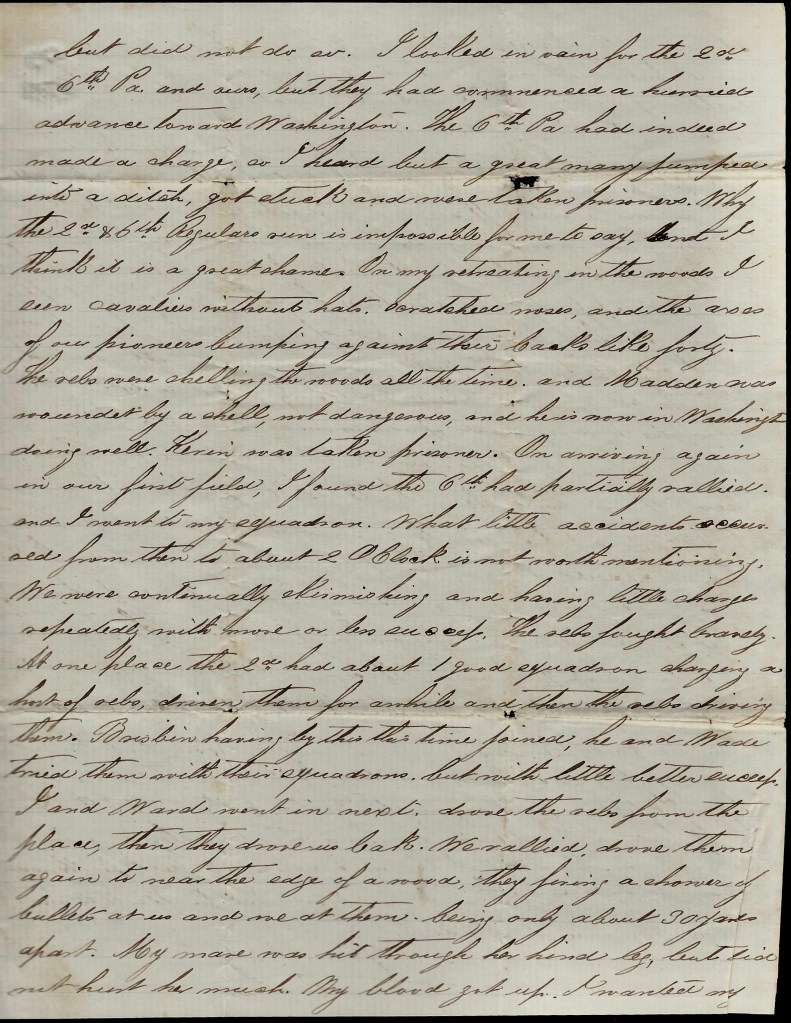 but did not do so. I looked in vain for the 2d
6th Pa. and ours, but they had commenced a hurried
advance toward Washington. The 6th Pa had indeed
made a charge, so I heard but a great many jumped
into a ditch, got stuck and were taken prisoners. Why
the 2d & 6th Regulars run is impossible for me to say, and I
think it is a great shame. On my retreating in the woods I
seen cavaliers without hats. scratched noses, and the axes
of our pioneers bumping against their backs like forty.
The rebs were shelling the woods all the time. and Madden was
woundet by a shell, not dangerous, and he is now in Washingt
doing well. Kerin was taken prisoner. On arriving again
in our first field, I found the 6th had partially rallied.
and I went to my squadron. What little accidents occur-
red from then to about 2 OClock is not worth mentioning.
We were continually skirmishing and having little charges
repeatedly with more or less success. The rebs fought bravely.
At one place the 2d had about 1 good squadron charging a
host of rebs, driven them for awhile and then the rebs driving
them. Brisbin having by this this time joined, he and Wade
tried them with their squadrons. but with little better success.
I and Ward went in next. drove the rebs from the
place, then they drove us bak. We rallied, drove them
again to near the edge of a wood, they firing a shower of
bullets at us and we at them. being only about 30 yards
apart. My mare was hit through her hind leg, but did
not hurt her much. My blood got up. I wanted my